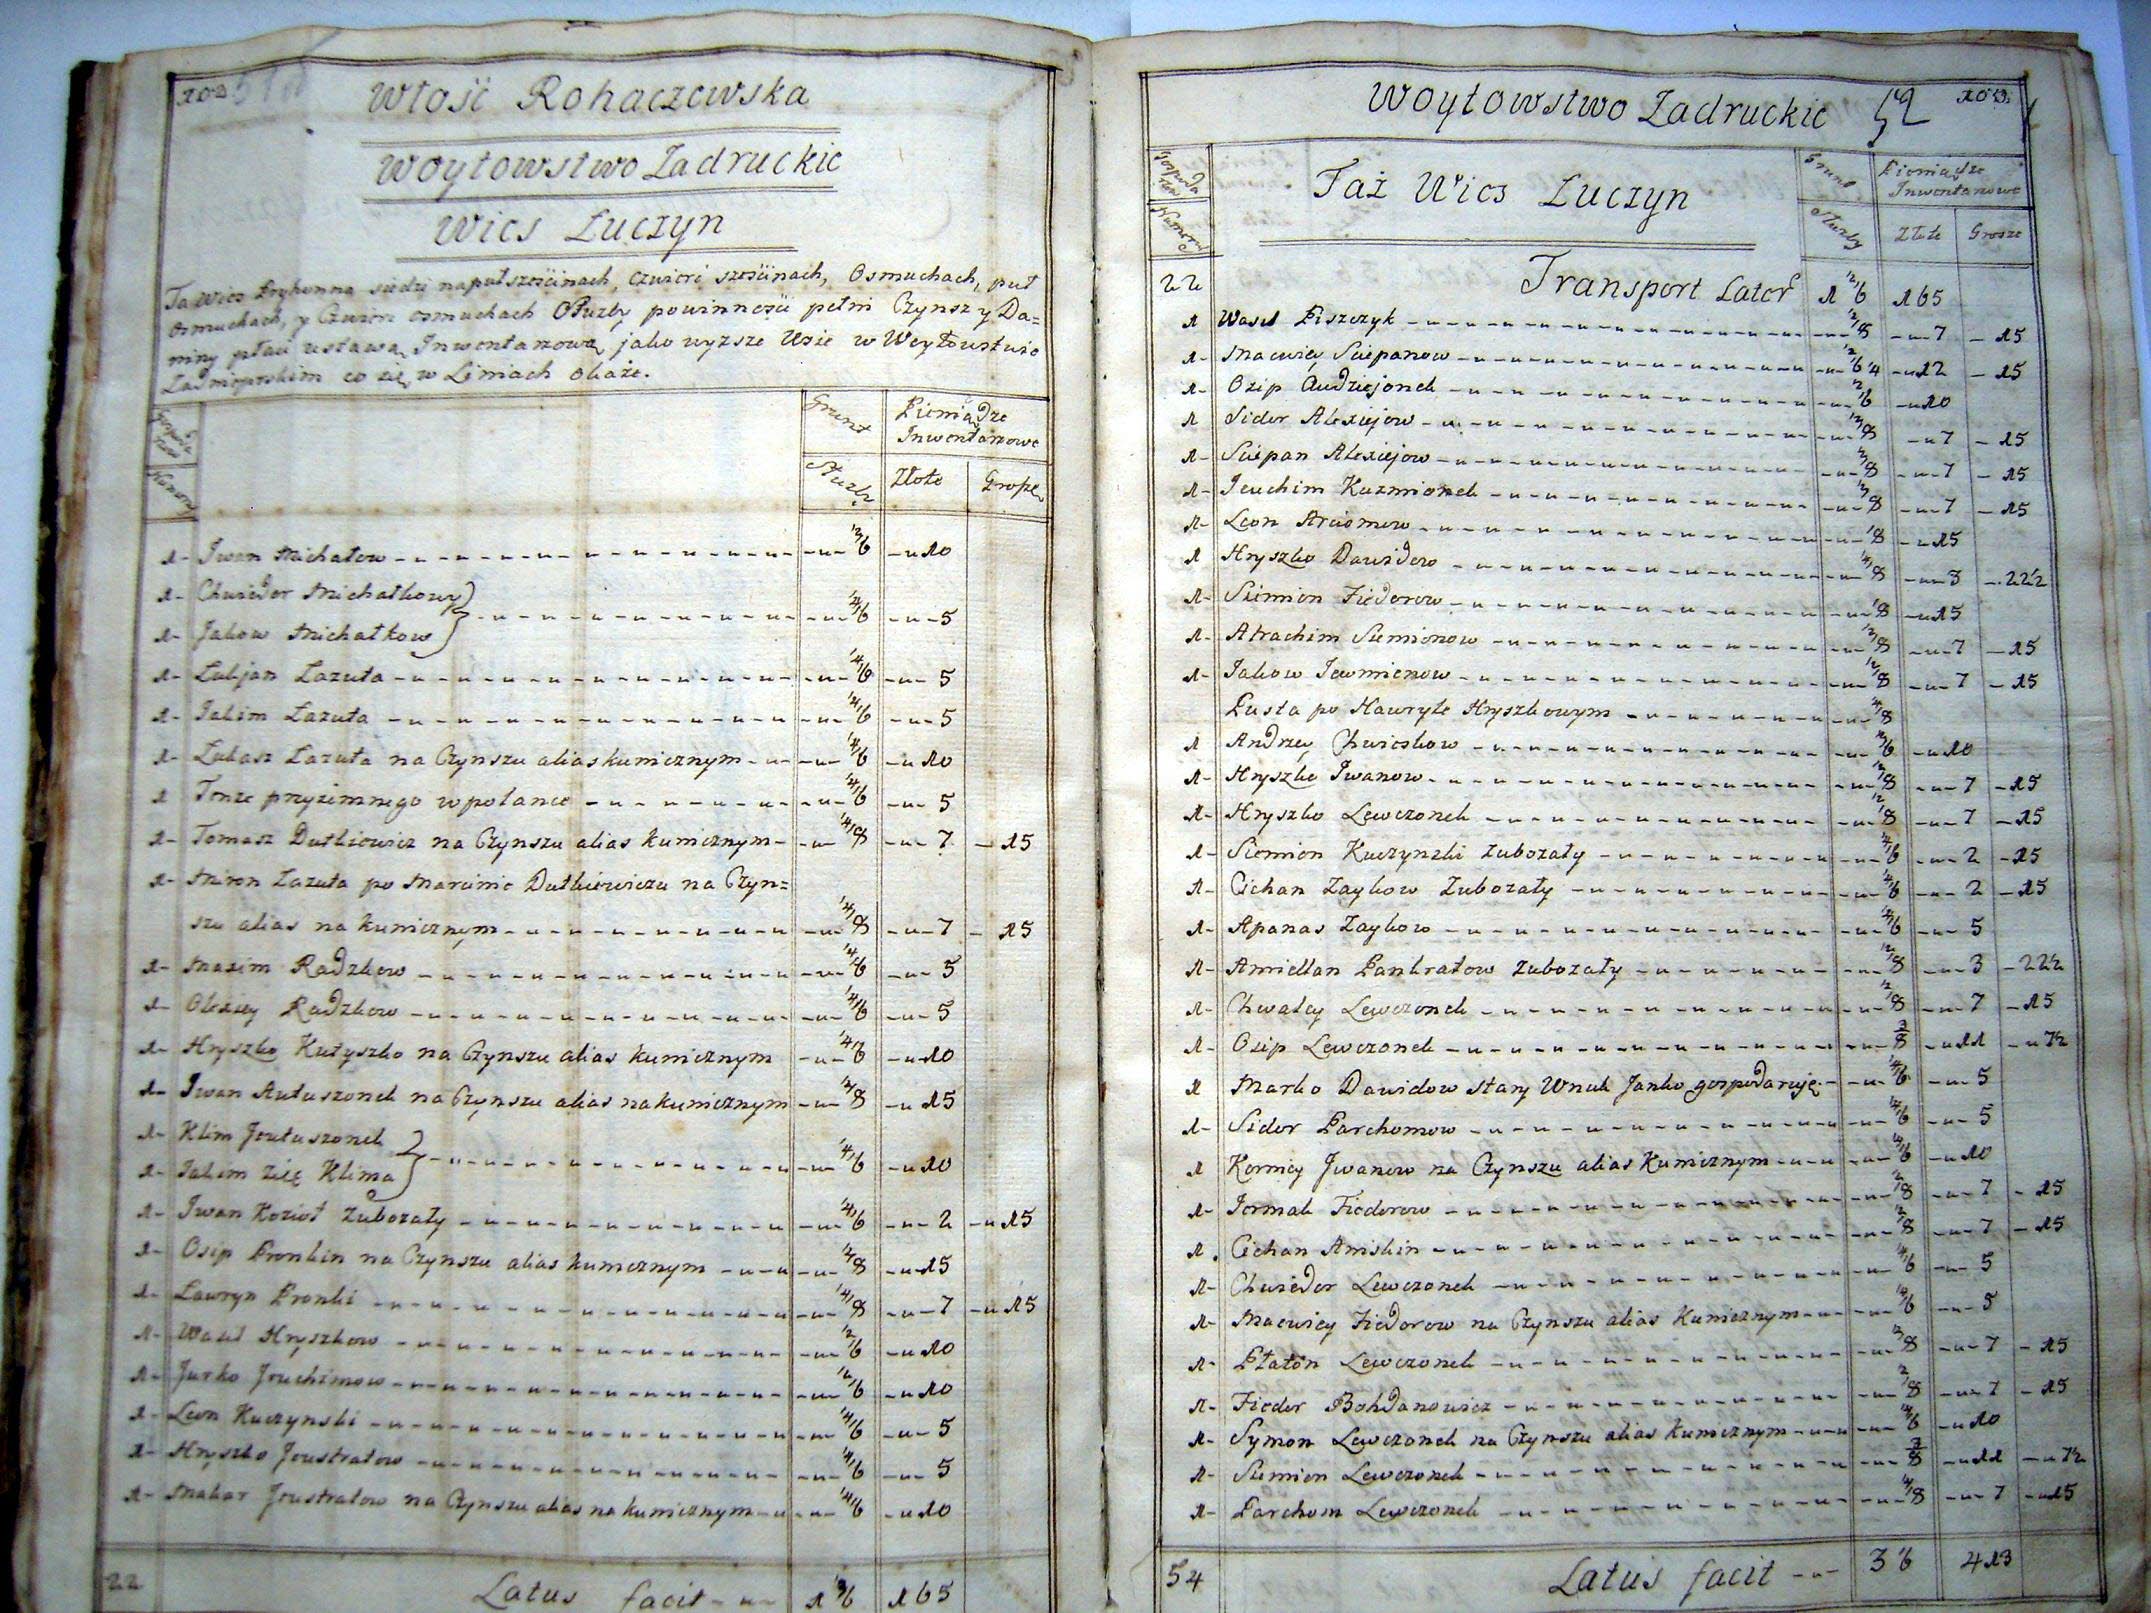 102
Włość Rohaczewska
Woytowstwo Zadruckie
Wieś Łuczyn
Ta Wieś Pryhonna siedzi na puł szościnach, czwierć szościnach, Osmuchach, puł
Osmuchach, y Czwierć osmuchach Służby powinności pełni Czynsz y Da=
niny płaci ustawą Inwentarzową jako wyższe Wsie w Woytowstwie
co się w Liniach okaże.
Gospoda
rze
Numera
Grunt
Służby
Pieniądze
Inwentarzowe
Złote
Grosze
1 - Iwan Michałow 1/2/6 10
1 - Chwiedor Michałkowy
1 - Jakow Michałkow 1/4/6 5
1 - Łukjan Łazuta 1/4/6 5
1 - Jakim Łazuta 1/4/6 5
1 - Łukasz Łazuta na Czynszu alias kunicznym 1/4/6 10
1 Tenże przyiemnego w połance 1/4/6 5
1 - Tomasz Dutkiewicz na Czynszu alias kunicznym 1/4/8 7 15
1 - Miron Łazuta po Marcinie Dutkiewiczu na Czyn=
szu alias na kunicznym 1/4/8 7 15
1 - Maxim Radzkow 1/4/6 5
1 - Olexiey Radzkow 1/4/6 5
1 - Hryszko Kutyszko na Czynszu alias kunicznym 1/4/6 10
1 - Iwan Autuszonek na Czynszu alias na kunicznym 1/2/8 15
1 - Klim Jeutuszonek
1 - Jakim Zięć Klima 1/4/6 10
1 - Iwan Kozioł Zubożały 1/4/6 2 15
1 - Osip Pronkin na Czynszu alias kunicznym 1/2/8 15
1 - Ławryn Pronki 1/4/8 7 15
1 - Wasil Hryszkow 1/2/6 10
1 - Jurko Jeuchimow 1/2/6 10
1 - Leon Kuczynski 1/4/6 5
1 - Hryszko Jeustratow 1/4/6 5
1 - Makar Jeustratow na Czynszu alias na kunicznym 1/4/6 10
22 Latus facit 165
Woytowstwo Zadruckie 52 103
Gospoda
rze
Numera
Taż Wieś Łuczyn
Grunt
Służby
Pieniądze
Inwentarzowe
Złote
Grosze
22 Transport Later 165
1 Wasil Piszczyk 1/2/8 7 15
1 - Maciey Sciepanow 12 15
1 - Osip Audziejonek 1/2/6 10
1 Sidor Alexiejow 1/2/8 7 15
1 - Sciepan Alexiejow 1/2/8 7 15
1 - Jeuchim Kuzmionek 1/2/8 7 15
1 - Leon Arciomow 1/8 15
1 Hryszko Dawidow 1/4/8 3 22 1/2
1 - Siemion Fiedorow 1/8 15
1 - Atrachim Siemionow 1/2/8 7 15
1 - Jakow Jewmienow 1/2/8 7 15
Pusta po Hawryle Hryszkowym 1/4/8
1 Andrzey Chwieskow 1/2/6 10
1 - Hryszko Iwanow 1/2/8 7 15
1 - Hryszko Lewczonek 1/2/8 7 15
1 - Siemion Kuczynski Zubożały 1/4/6 2 15
1 - Cichan Zaykow Zubożały 1/4/6 2 15
1 - Apanas Zaykow 1/4/6 5
1 - Amiellan Pankratow Zubożały 1/2/8 3 22 1/2
1 - Chwałey Lewczonek 1/2/8 7 15
1 - Osip Lewczonek 3/8 11 7 1/2
1 Marko Dawidow stary Wnuk Janko gospodaruję 1/4/6 5
1 - Sidor Parchomow 1/4/6 5
1 Korniey Iwanow na Czynszu alias Kunicznym 1/4/6 10
1 - Jermak Fiedorow 1/2/8 7 15
1 . Cichan Aniskin 1/2/8 7 15
1 - Chwiedor Lewczonek 1/4/6 5
1 - Maciey Fiedorow na Czynszu alias Kunicznym 1/4/6 5
1 - Płaton Lewczonek 1/2/8 7 15
1 - Fiedor Bohdanowicz 1/2/8 7 15
1 - Symon Lewczonek na Czynszu alias Kunicznym 1/4/6 10
1 - Siemion Lewczonek 3/8 11 7 1/2
1 - Parchom Lewczonek 1/4/8 7 15
54 Latus facit 3 1/6 413